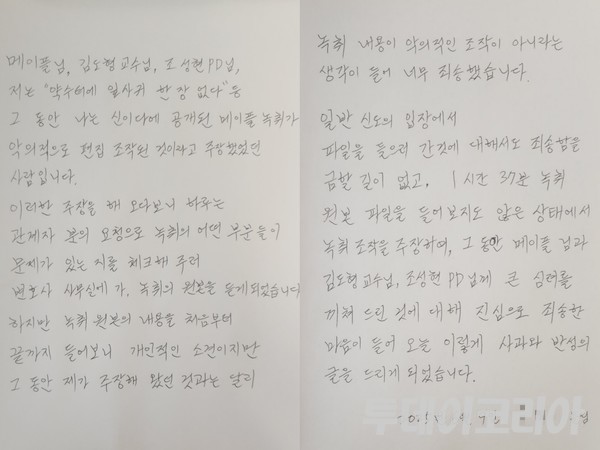 메이플님, 김도형 교수님, 조성현 PD님,
저는 "약수터에 일사귀 한 장 없다" 등
그 동안 나는 신이다에 공개된 메이플 녹취가
악의적으로 편집 조작된 것이라고 주장했었던
사람입니다.
이러한 주장을 해 오다보니 하루는
관계자 분의 요청으로 녹취의 어떤 부분들이
문제가 있는 지를 체크해 주러
변호사 사무실에 가, 녹취의 원본을 듣게 되었습니다
하지만 녹취 원본의 내용을 처음부터
끝까지 들어보니 개인적인 소견이지만
그 동안 제가 주장해 왔던 것과는 달리
녹취 내용이 악의적인 조작이 아니라는
생각이 들어 너무 죄송했습니다.
일반 신도의 입장에서
파일을 들으러 간것에 대해서도 죄송함을
금할 길이 없고, 1시간 37분 녹취
원본 파일을 들어보지도 않은 상태에서
녹취 조작을 주장하여, 그 동안 메이플 님과
김도형 교수님, 조성현 PD님께 큰 심려를
끼쳐 드린 것에 대해 진심으로 죄송한
마음이 들어 오늘 이렇게 사과와 반성의
글을 드리게 되었습니다.
투데이코리아